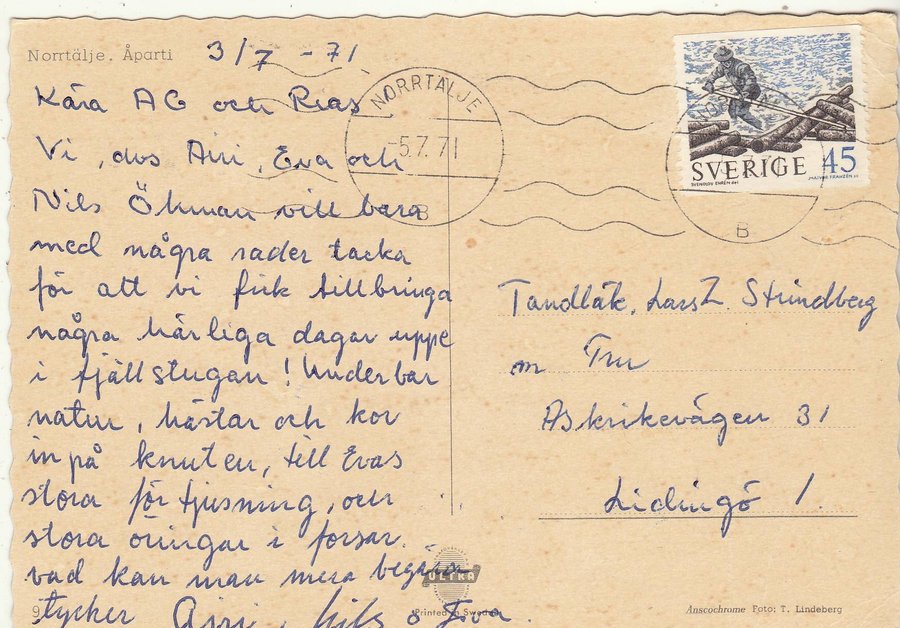 Norrtälje. Åparti
3/7 - 71
Kära AG och Rias
Vi, dvs Airi, Eva och
Nils Öhman vill bara
med några rader tacka
för att vi fick tillbringa
några härliga dagar uppe
i fjällstugan! Underbar
natur, hästar och kor
in på knuten, till Evas
stora förtjusning, och
stora öringar i forsar.
vad kan man mera begära
tycker Airi, Nils o Eva.
NORRTÄLJE
-5.7.71
B
SVERIGE 45
B
Tandläk. Lars Z. Strindberg
m Fru
Askrikevägen 31
Lidingö 1
ULTRA
Printed in Sweden
Anscochrome Foto: T. Lindeberg